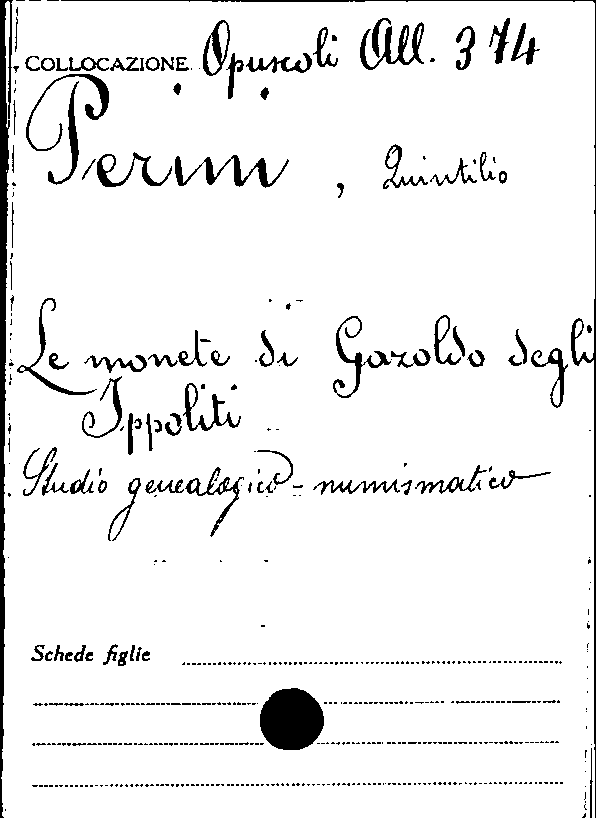 COLLOCAZIONE Opuscoli All. 374
Perini, Quintilio
Le monete di Gazoldo degli
Ippoliti
Studio genealogico-numismatico
Schede figlie